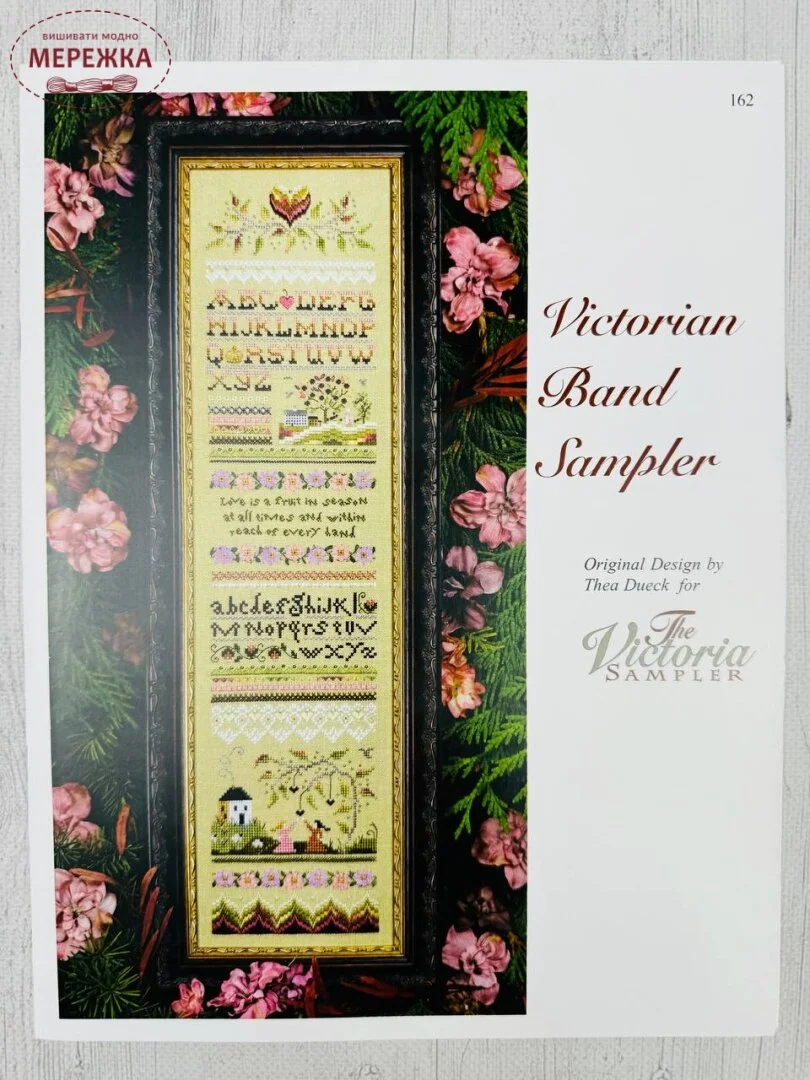 вишивати модно
МЕРЕЖКА
162
ABCDEFG
HIJKLMNOP
QRSTUVW
XYZ
Love is a fruit in season
at all times and within
reach of every hand
abcdefghijkl
mnopqrstuv
wxyz
Victorian
Band
Sampler
Original Design by
Thea Dueck for
The
Victoria
SAMPLER